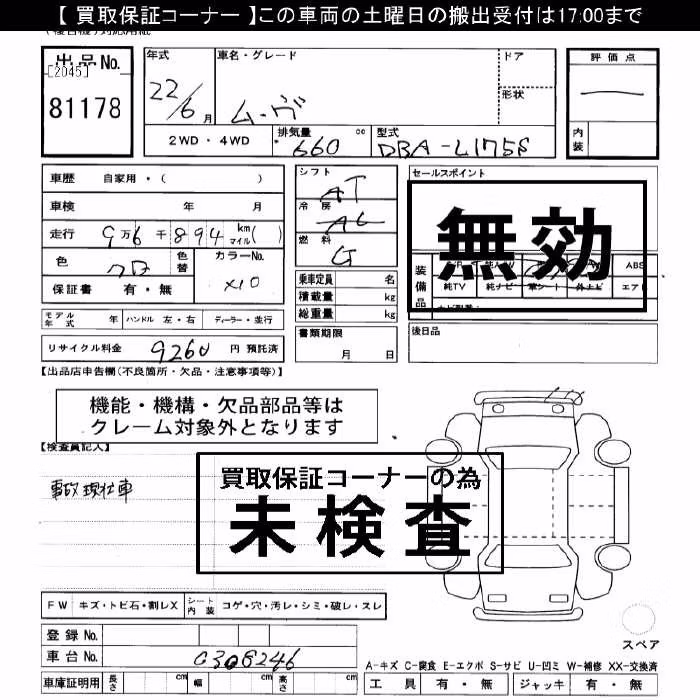 【 買取保証コーナー 】この車両の土曜日の搬出受付は17:00まで
出品 No.
[2045]
81178
年式
22/6 月
車名・グレード
ムーヴ
ドア
形状
評価点
内装
2WD ・ 4WD
排気量
660 cc
型式
DBA-L175S
車歴 自家用・( )
車検 年 月
走行 9万6千894 km マイル( )
色
色替
カラーNo.
クロ
X10
保証書 有・無
シフト
AT
冷房
AC
燃料
G
乗車定員 名
積載量 kg
総重量 kg
書類期限
月 日
セールスポイント
無効
装備品
ABS
純TV 純ナビ 革シート 外ナビ エアB
後日品
モデル年式 年 ハンドル 左・右 ディーラー・並行
リサイクル料金 9260 円 預託済
【出品店申告欄(不良箇所・欠品・注意事項等)】
機能・機構・欠品部品等は
クレーム対象外となります
【検査員記入】
事故現状車
買取保証コーナーの為
未検査
FW キズ・トビ石・割レX シート内装 コゲ・穴・汚レ・シミ・破レ・スレ
登録 No.
車台 No. 0308246
車庫証明用 長さ cm 幅 cm 高さ cm
スペア
A-キズ C-腐食 E-エクボ S-サビ U-凹ミ W-補修 XX-交換済
工具 有・無 ジャッキ 有・無